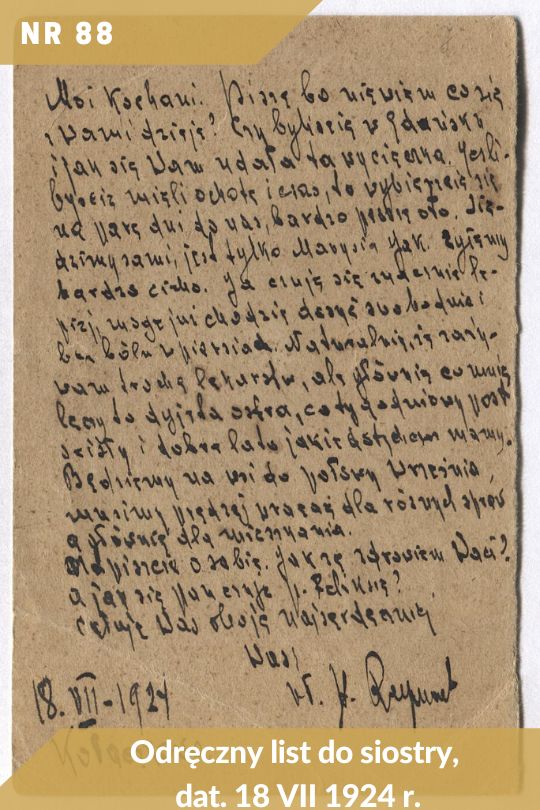 NR 88
Moi Kochani. Piszę bo nie wiem co się
z Wami dzieje? Czy byliście w Gdańsku
i jak się Wam udała ta wycieczka. Jeśli-
byście mieli ochotę i czas, to wybierzcie się
na parę dni do nas, bardzo proszę o to. Sie-
dzimy sami, jest tylko Marysia Jak. Żyjemy
bardzo cicho. Ja czuję się znacznie le-
piej, mogę już chodzić dosyć swobodnie i
bez bólu w piersiach. Naturalnie, że zaży-
wam trochę lekarstw, ale głównie co mnie
leczy to dyjeta ostra, cotygodniowy post
ścisły i dobre lato jakie dotychczas mamy.
Będziemy na wsi do połowy września,
musimy prędzej wracać dla różnych spraw
a głównie dla mieszkania.
Napiszcie o sobie. Jak ze zdrowiem Waci?
a jak się pan czuje p. Feliksie?
Całuję Was oboje najserdeczniej
Wasz
wł. St. Reymont
18. VII - 1924
Odręczny list do siostry,
dat. 18 VII 1924 r.